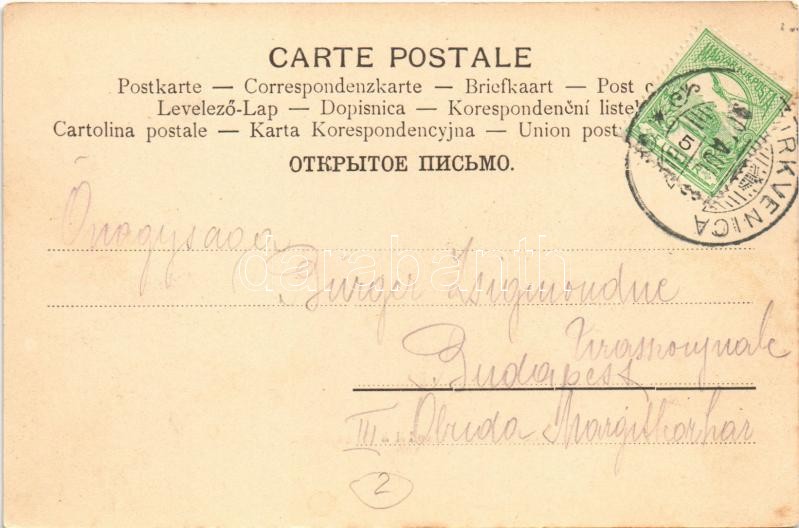 CARTE POSTALE
Postkarte — Correspondenzkarte — Briefkaart — Post c
Levelező-Lap — Dopisnica — Korespondenční liste
Cartolina postale — Karta Korespondencyjna — Union post
ОТКРЫТОЕ ПИСЬМО.
MAGYAR KIR. POSTA
CIRKVENICA
Önagysága
Bürger Zsigmondné
Budapest
III. Óbuda
2
darabanth